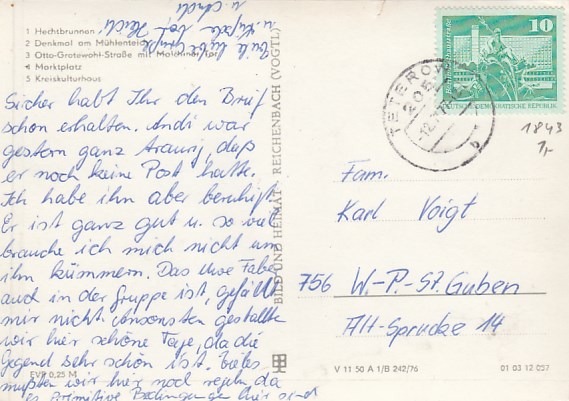 1 Hechtbrunnen
2 Denkmal am Mühlenteich
3 Otto-Grotewohl-Straße mit Malchiner Tor
4 Marktplatz
5 Kreiskulturhaus
Sicher habt Ihr den Brief
schon erhalten. Andi war
gestern ganz traurig, daß
er noch keine Post hatte.
Ich habe ihn aber beruhigt.
Er ist ganz gut u. so viel
brauche ich mich nicht um
ihn kümmern. Das Uwe
auch in der Gruppe ist, gefällt
mir nicht. Ansonsten gestalten
wir hier schöne Tage, da die
Gegend sehr schön ist. Vieles
mußten wir hier noch regeln, da
es primitive Bedingungen hier sind
EVP 0,25 M
BILD UND HEIMAT REICHENBACH (VOGTL)
10
DEUTSCHE DEMOKRATISCHE REPUBLIK
TETEROW
205
1843
1,-
Fam.
Karl Voigt
756 W.-P.-St. Guben
Alt-Sprucke 14
V 11 50 A 1/B 242/76
01 03 12 057